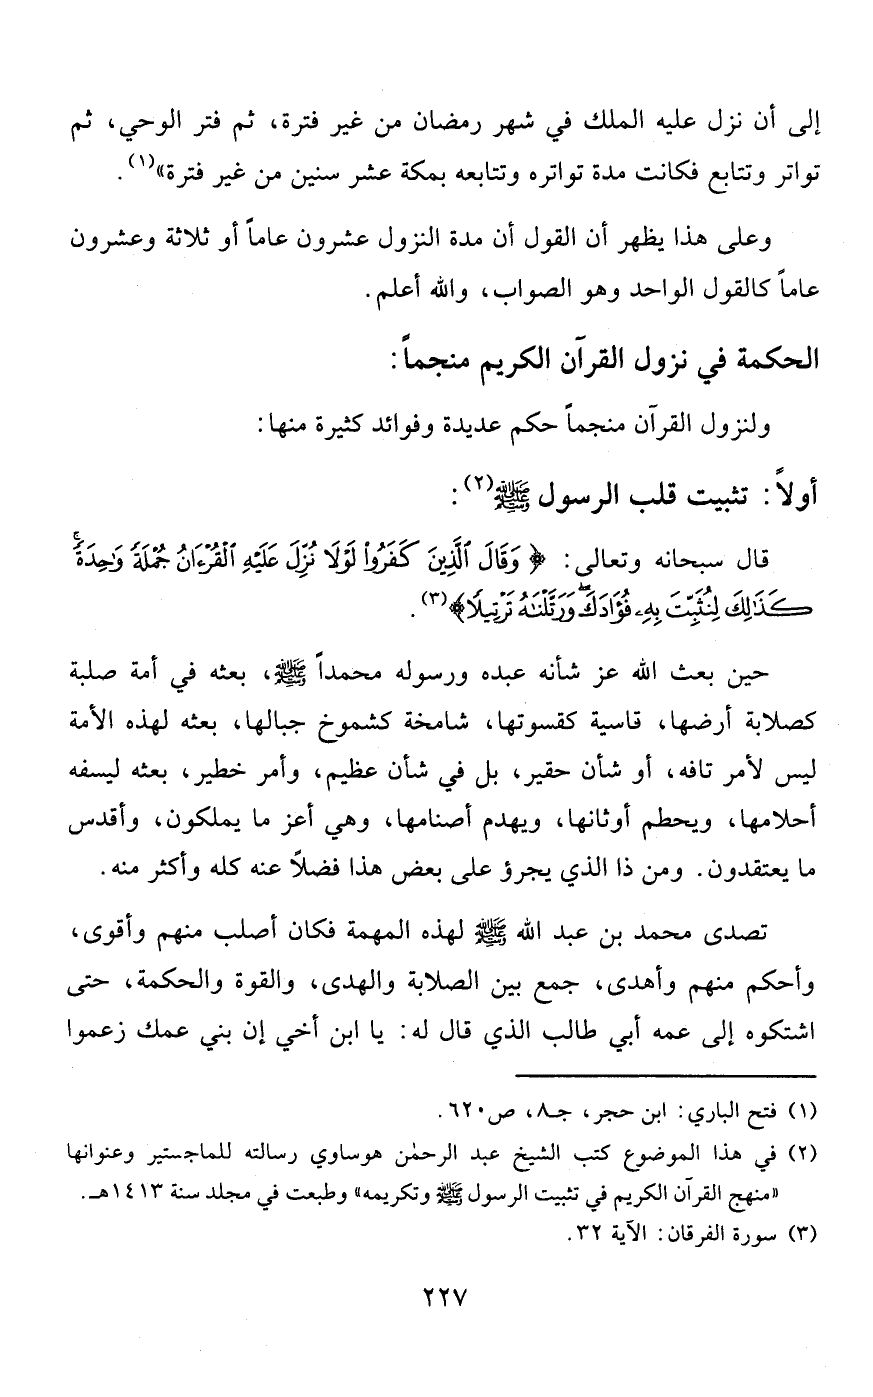 إلى أن نزل عليه الملك في شهر رمضان من غير فترة، ثم فتر الوحي، ثم
تواتر وتتابع فكانت مدة تواتره وتتابعه بمكة عشر سنين من غير فترة»(١).
وعلى هذا يظهر أن القول أن مدة النزول عشرون عاماً أو ثلاثة وعشرون
عاماً كالقول الواحد وهو الصواب، والله أعلم.
الحكمة في نزول القرآن الكريم منجماً:
ولنزول القرآن منجماً حكم عديدة وفوائد كثيرة منها:
أولاً: تثبيت قلب الرسول ﷺ(٢):
قال سبحانه وتعالى: ﴿وَقَالَ ٱلَّذِينَ كَفَرُواْ لَوْلَا نُزِّلَ عَلَيْهِ ٱلْقُرْءَانُ جُمْلَةً وَٰحِدَةً ۚ
كَذَٰلِكَ لِنُثَبِّتَ بِهِۦ فُؤَادَكَ ۖ وَرَتَّلْنَٰهُ تَرْتِيلًا﴾(٣).
حين بعث الله عز شأنه عبده ورسوله محمداً ﷺ، بعثه في أمة صلبة
كصلابة أرضها، قاسية كقسوتها، شامخة كشموخ جبالها، بعثه لهذه الأمة
ليس لأمر تافه، أو شأن حقير، بل في شأن عظيم، وأمر خطير، بعثه ليسفه
أحلامها، ويحطم أوثانها، ويهدم أصنامها، وهي أعز ما يملكون، وأقدس
ما يعتقدون. ومن ذا الذي يجرؤ على بعض هذا فضلاً عنه كله وأكثر منه.
تصدى محمد بن عبد الله ﷺ لهذه المهمة فكان أصلب منهم وأقوى،
وأحكم منهم وأهدى، جمع بين الصلابة والهدى، والقوة والحكمة، حتى
اشتكوه إلى عمه أبي طالب الذي قال له: يا ابن أخي إن بني عمك زعموا
(١) فتح الباري: ابن حجر، جـ٨، ص٦٢٠.
(٢) في هذا الموضوع كتب الشيخ عبد الرحمٰن هوساوي رسالته للماجستير وعنوانها
«منهج القرآن الكريم في تثبيت الرسول ﷺ وتكريمه» وطبعت في مجلد سنة ١٤١٣هـ.
(٣) سورة الفرقان: الآية ٣٢.
٢٢٧